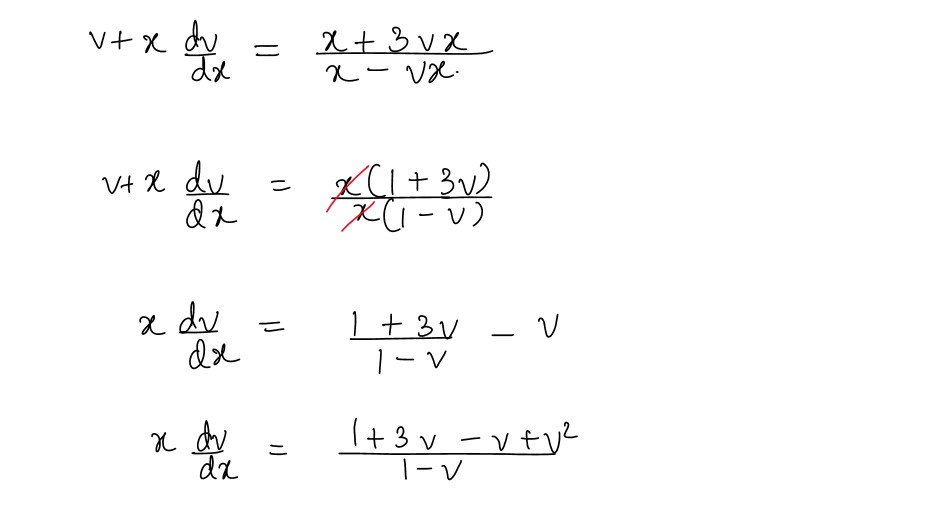 v + x dv/dx = (x + 3vx)/(x - vx)
v + x dv/dx = x(1 + 3v)/x(1 - v)
x dv/dx = (1 + 3v)/(1 - v) - v
x dv/dx = (1 + 3v - v + v²)/(1 - v)